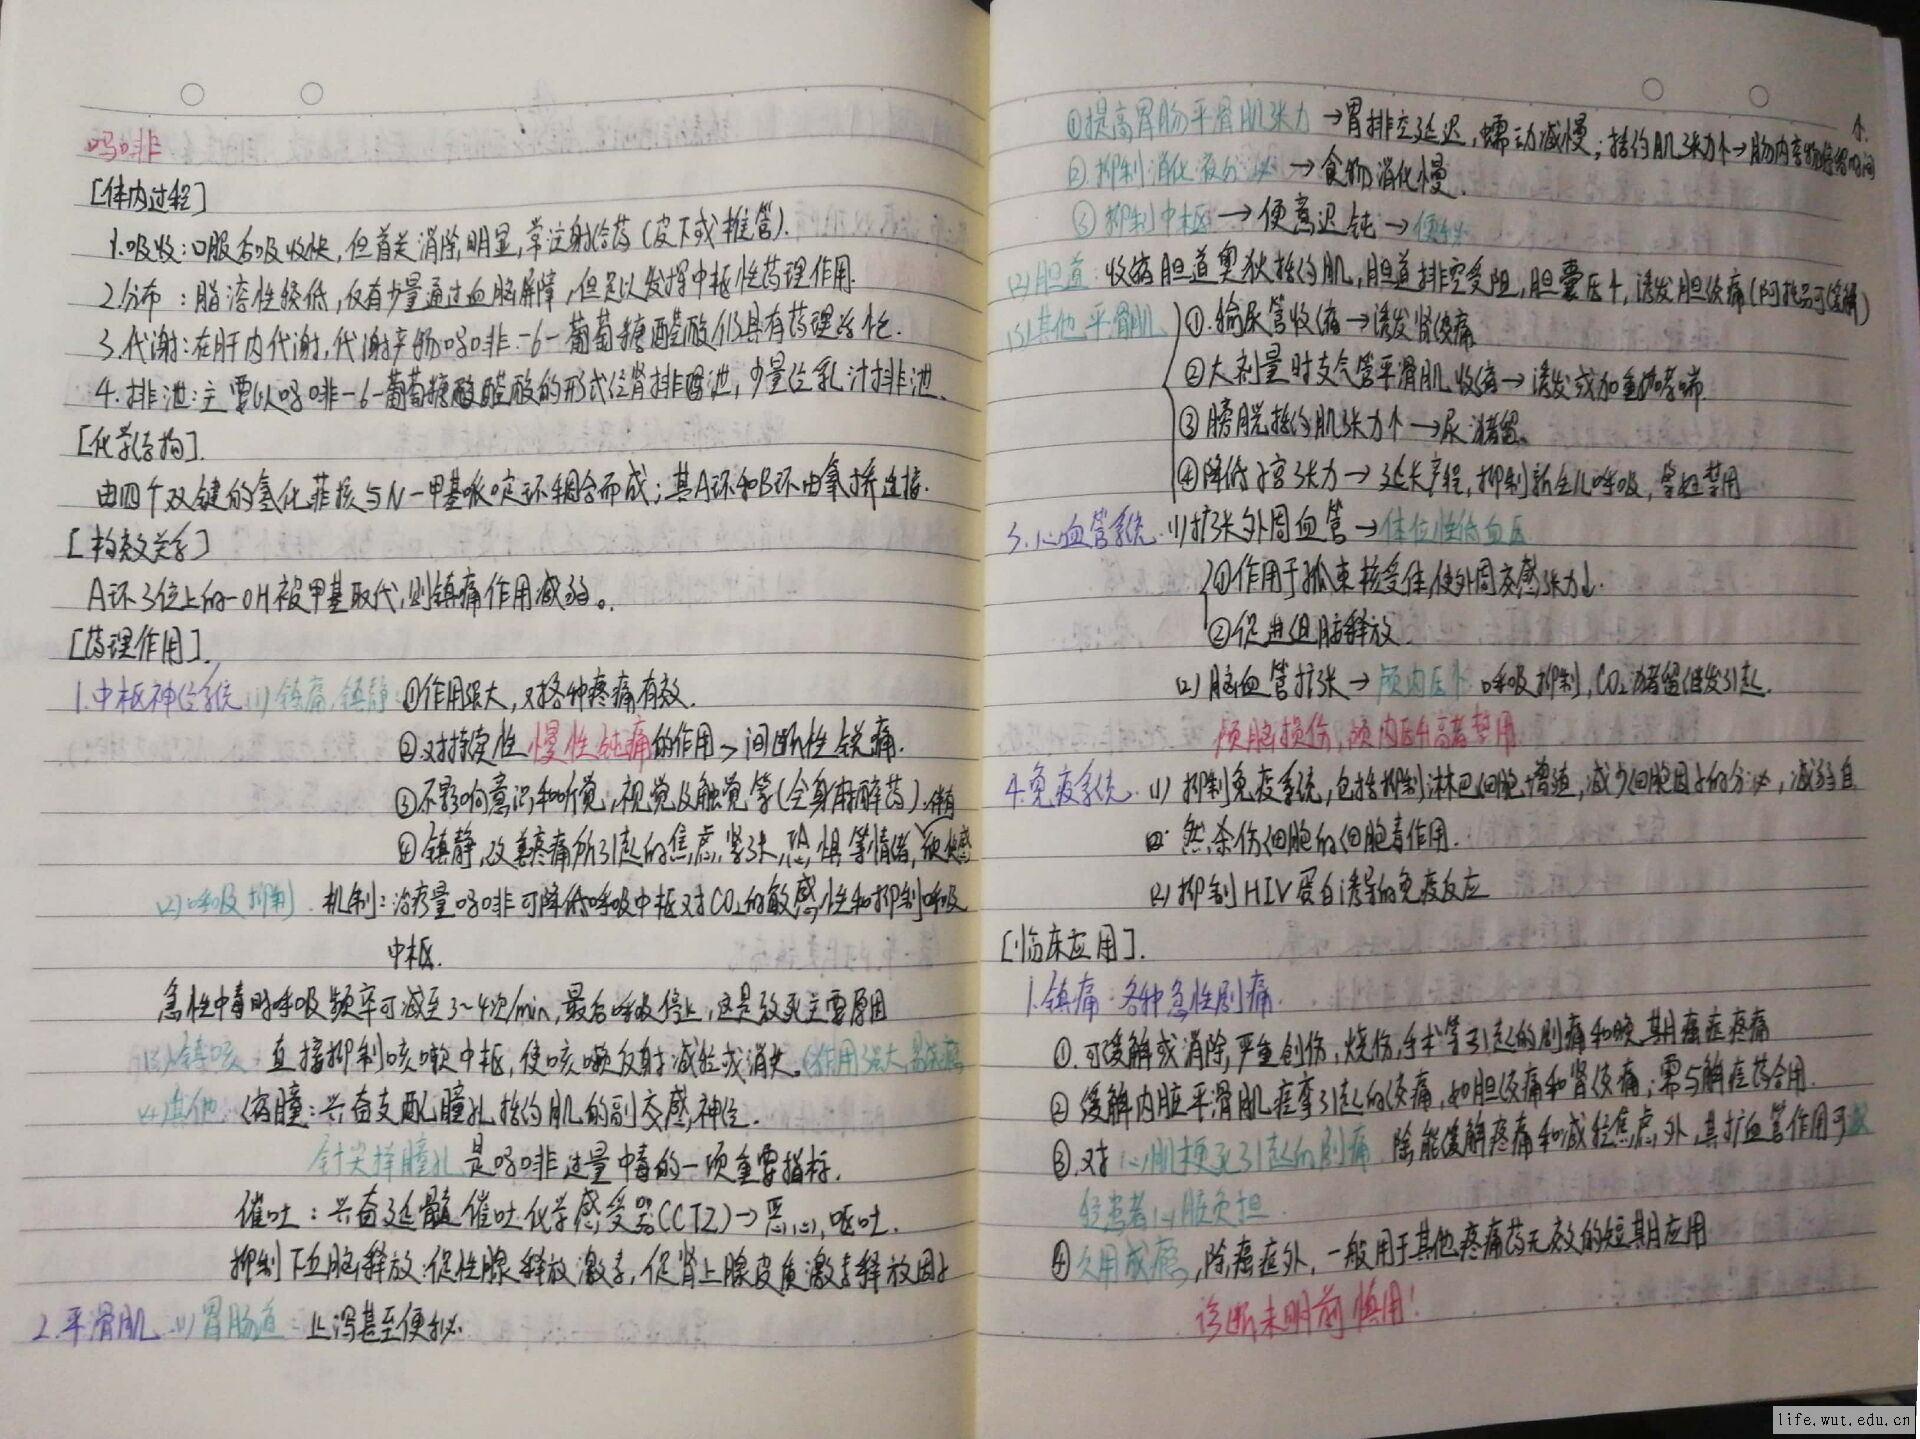 吗啡
[体内过程]
1.吸收:口服后吸收快,但首关消除明显,常注射给药(皮下或椎管).
2.分布:脂溶性较低,仅有少量通过血脑屏障,但足以发挥中枢性药理作用.
3.代谢:在肝内代谢,代谢产物吗啡-6-葡萄糖醛酸仍具有药理活性.
4.排泄:主要以吗啡-6-葡萄糖醛酸的形式经肾排泄,少量经乳汁排泄.
[化学结构].
由四个双键的氢化菲核与N-甲基哌啶环稠合而成;其A环和B环由氧桥连接.
[构效关系]
A环3位上的-OH被甲基取代,则镇痛作用减弱。
[药理作用].
1.中枢神经系统 (1)镇痛,镇静:①作用强大,对各种疼痛有效.
②对持续性慢性钝痛的作用>间断性锐痛.
③不影响意识和听觉,视觉及触觉等(全身麻醉药).伴有
④镇静,改善疼痛所引起的焦虑,紧张,恐惧等情绪,欣快感
(2)呼吸抑制.机制:治疗量吗啡可降低呼吸中枢对CO₂的敏感性和抑制呼吸
中枢.
急性中毒时呼吸频率可减至3~4次/min,最后呼吸停止,这是致死主要原因
(3)镇咳:直接抑制咳嗽中枢,使咳嗽反射减轻或消失。(作用强大,易成瘾)
(4)其他.缩瞳:兴奋支配瞳孔括约肌的副交感神经.
针尖样瞳孔是吗啡过量中毒的一项重要指标.
催吐:兴奋延髓催吐化学感受器(CTZ)→恶心,呕吐.
抑制下丘脑释放促性腺释放激素,促肾上腺皮质激素释放因子
2.平滑肌.(1)胃肠道:止泻甚至便秘.
①提高胃肠平滑肌张力→胃排空延迟,蠕动减慢;括约肌张力↑→肠内容物停留时间↑.
②抑制消化液分泌→食物消化慢.
③抑制中枢→便意迟钝→便秘
(2)胆道:收缩胆道奥狄括约肌,胆道排空受阻,胆囊压↑,诱发胆绞痛(阿托品可缓解)
(3)其他平滑肌 ①.输尿管收缩→诱发肾绞痛
②大剂量时支气管平滑肌收缩→诱发或加重哮喘
③膀胱括约肌张力↑→尿潴留.
④降低子宫张力→延长产程,抑制新生儿呼吸,孕妇禁用
3.心血管系统.(1)扩张外周血管→体位性低血压
①作用于孤束核受体,使外周交感张力↓.
②促进组胺释放
(2)脑血管扩张→颅内压↑ 呼吸抑制,CO₂潴留继发引起.
颅脑损伤,颅内压升高者禁用
4.免疫系统.(1)抑制免疫系统,包括抑制淋巴细胞增殖,减少细胞因子的分泌,减弱自
然杀伤细胞的细胞毒作用.
(2)抑制HIV蛋白诱导的免疫反应
[临床应用].
1.镇痛.各种急性剧痛.
①.可缓解或消除,严重创伤,烧伤,手术等引起的剧痛和晚期癌症疼痛
②缓解内脏平滑肌痉挛引起的绞痛,如胆绞痛和肾绞痛;需与解痉药合用.
③.对心肌梗死引起的剧痛 除能缓解疼痛和减轻焦虑外,其扩血管作用可减
轻患者心脏负担.
④久用成瘾,除癌症外,一般用于其他疼痛药无效的短期应用
诊断未明前慎用!
life.wut.edu.cn